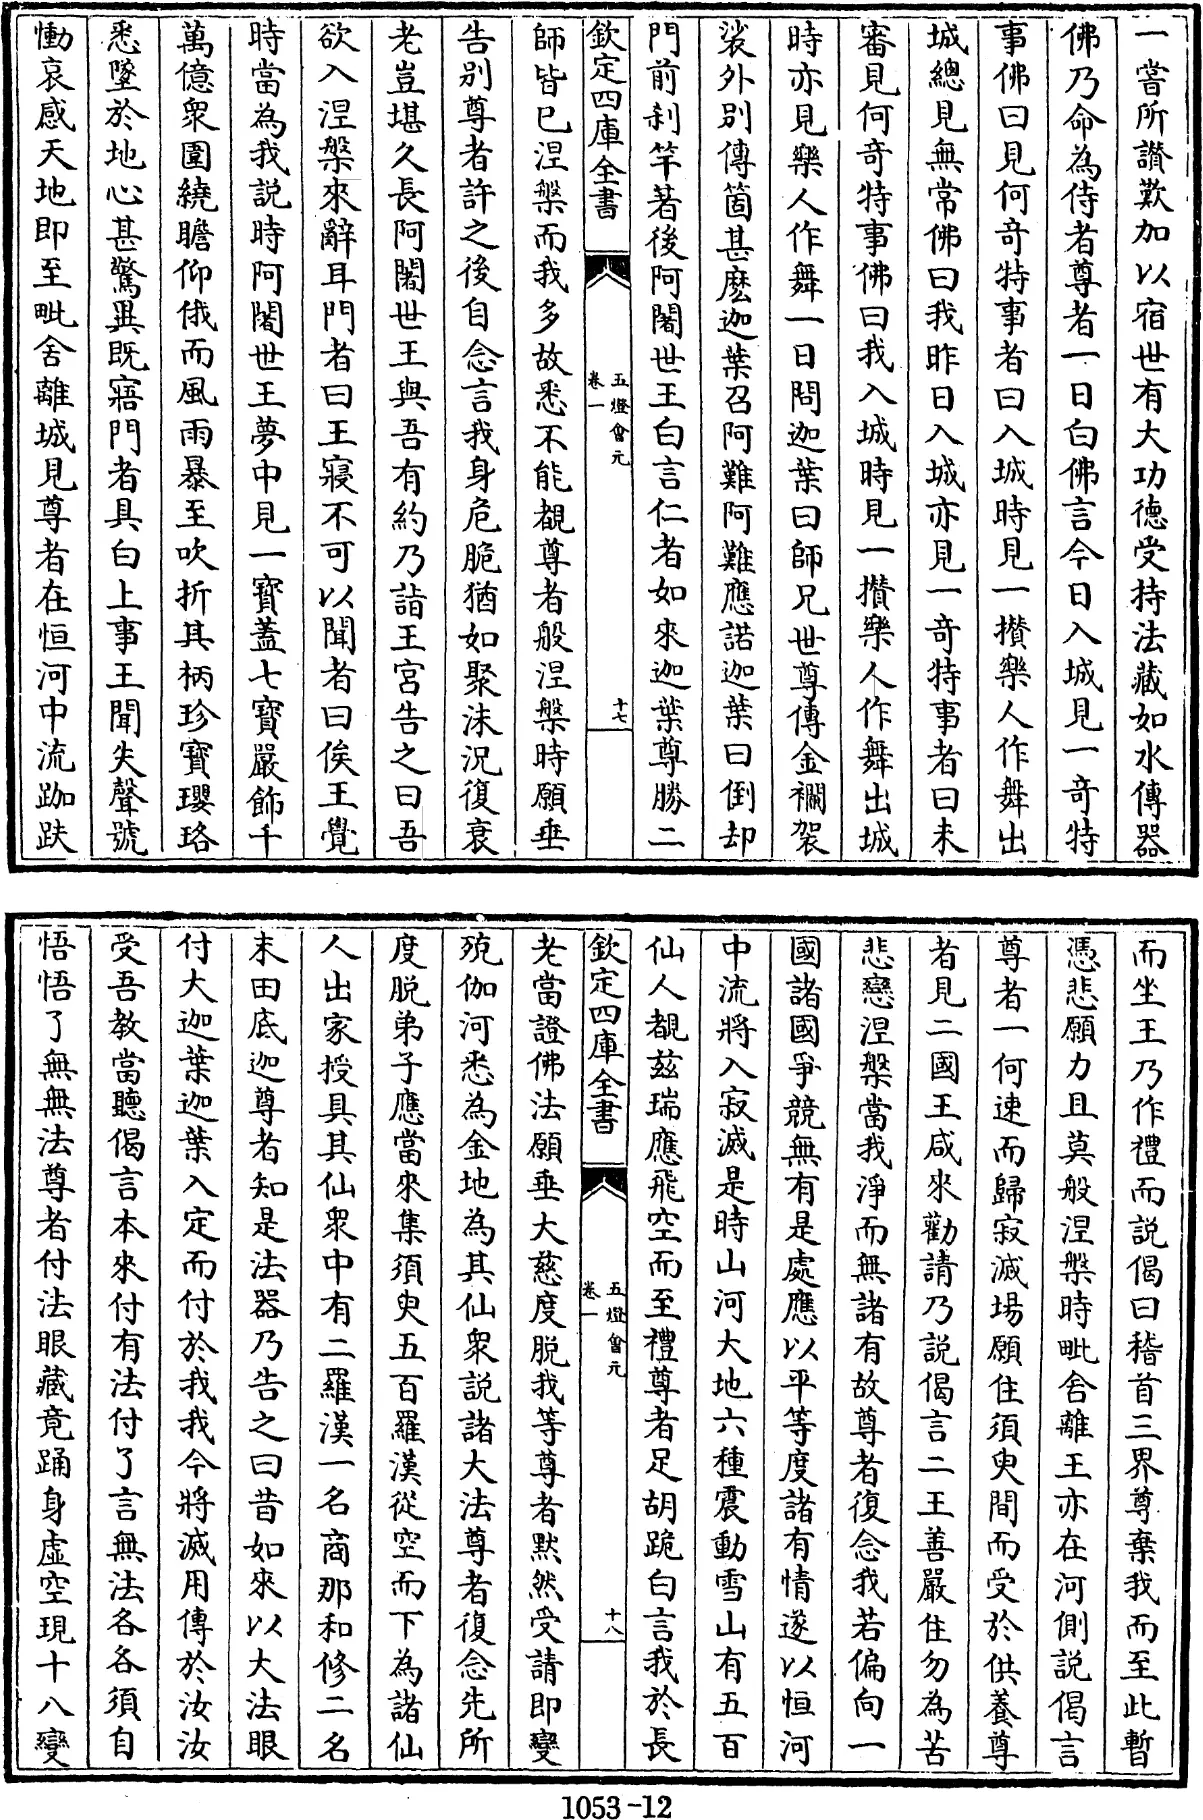 一嘗所讃歎加以宿世有大功德受持法藏如水傳器
佛乃命為侍者尊者一日白佛言今日入城見一奇特
事佛曰見何奇特事者曰入城時見一攢樂人作舞出
城總見無常佛曰我昨日入城亦見一奇特事者曰未
審見何奇特事佛曰我入城時見一攢樂人作舞出城
時亦見樂人作舞一日問迦葉曰師兄世尊傳金襴袈
裟外别傳箇甚麽迦葉召阿難阿難應諾迦葉曰倒却
門前刹竿著後阿闍世王白言仁者如來迦葉尊勝二
欽定四庫全書
五燈會元
卷一
十七
師皆已涅槃而我多故悉不能覩尊者般涅槃時願垂
告别尊者許之後自念言我身危脆猶如聚沫況復衰
老豈堪久長阿闍世王與吾有約乃詣王宮告之曰吾
欲入涅槃來辭耳門者曰王寢不可以聞者曰俟王覺
時當為我説時阿闍世王夢中見一寶蓋七寶嚴飾千
萬億衆圍繞瞻仰俄而風雨暴至吹折其柄珍寶瓔珞
悉墜於地心甚驚異既寤門者具白上事王聞失聲號
慟哀感天地即至毗舍離城見尊者在恒河中流跏趺
而坐王乃作禮而説偈曰稽首三界尊棄我而至此暫
憑悲願力且莫般涅槃時毗舍離王亦在河側説偈言
尊者一何速而歸寂滅場願住須臾間而受於供養尊
者見二國王咸來勸請乃説偈言二王善嚴住勿為苦
悲戀涅槃當我淨而無諸有故尊者復念我若偏向一
國諸國爭競無有是處應以平等度諸有情遂以恒河
中流將入寂滅是時山河大地六種震動雪山有五百
仙人覩茲瑞應飛空而至禮尊者足胡跪白言我於長
欽定四庫全書
五燈會元
卷一
十八
老當證佛法願垂大慈度脱我等尊者默然受請即變
殑伽河悉為金地為其仙衆説諸大法尊者復念先所
度脱弟子應當來集須臾五百羅漢從空而下為諸仙
人出家授具其仙衆中有二羅漢一名商那和修二名
末田底迦尊者知是法器乃告之曰昔如來以大法眼
付大迦葉迦葉入定而付於我我今將滅用傳於汝汝
受吾教當聽偈言本來付有法付了言無法各各須自
悟悟了無無法尊者付法眼藏竟踊身虛空現十八變
1053-12